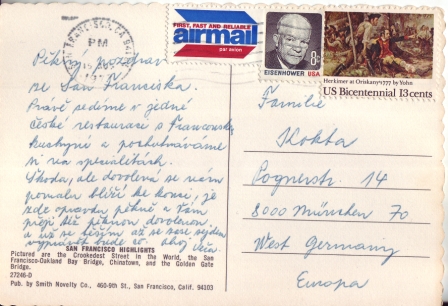 SAN FRANCISCO, CA 941
PM
FIRST, FAST AND RELIABLE
airmail
par avion
8c
EISENHOWER USA
Herkimer at Oriskany 1777 by Yohn
US Bicentennial 13cents
Pěkný pozdrav
ze San Franciska.
Právě sedíme v jedné
české restauraci s francouzskou
kuchyní a pochutnáváme
si na specialitách.
Škoda, ale dovolená se nám
pomalu blíží ke konci, je
zde opravdu pěkně a Vám
přeji též pěknou dovolenou
a už se těším až se zase sejdem
vyprávět bude co. ahoj
Familie
Kokta
Pognerstr. 14
8000 München 70
West Germany
Europa
SAN FRANCISCO HIGHLIGHTS
Pictured are the Crookedest Street in the World, the San
Francisco-Oakland Bay Bridge, Chinatown, and the Golden Gate
Bridge.
27246-D
Pub. by Smith Novelty Co., 460-9th St., San Francisco, Calif. 94103